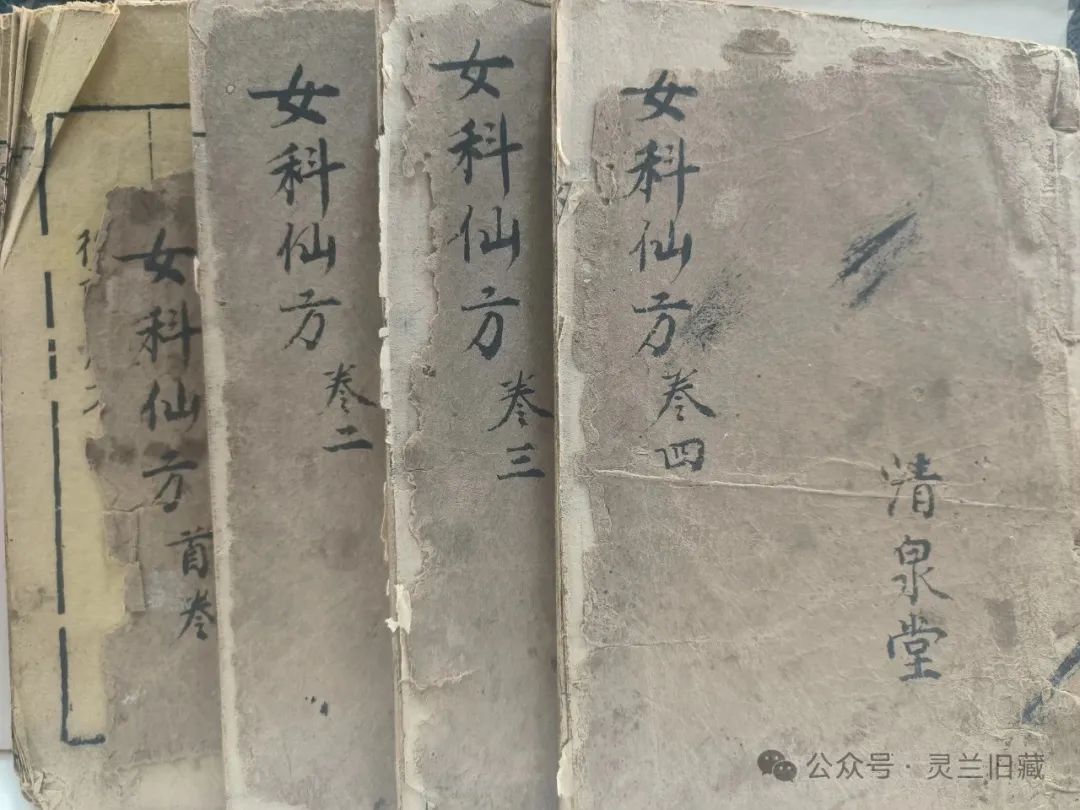 女科仙方
首卷
女科仙方
卷二
女科仙方
卷三
女科仙方
卷四
清泉堂
公众号·灵兰旧藏